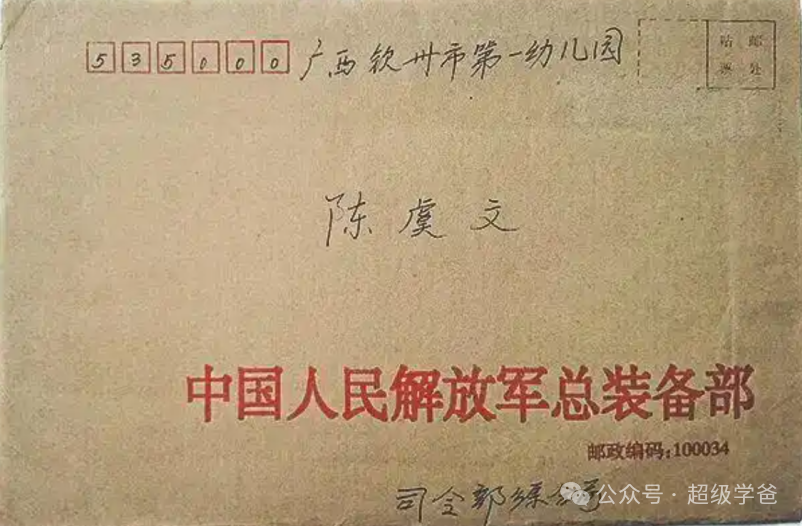 535000 广西钦州市第一幼儿园
贴 邮
票 处
陈虞文
中国人民解放军总装备部
邮政编码:100034
司令部综合
公众号·超级学爸